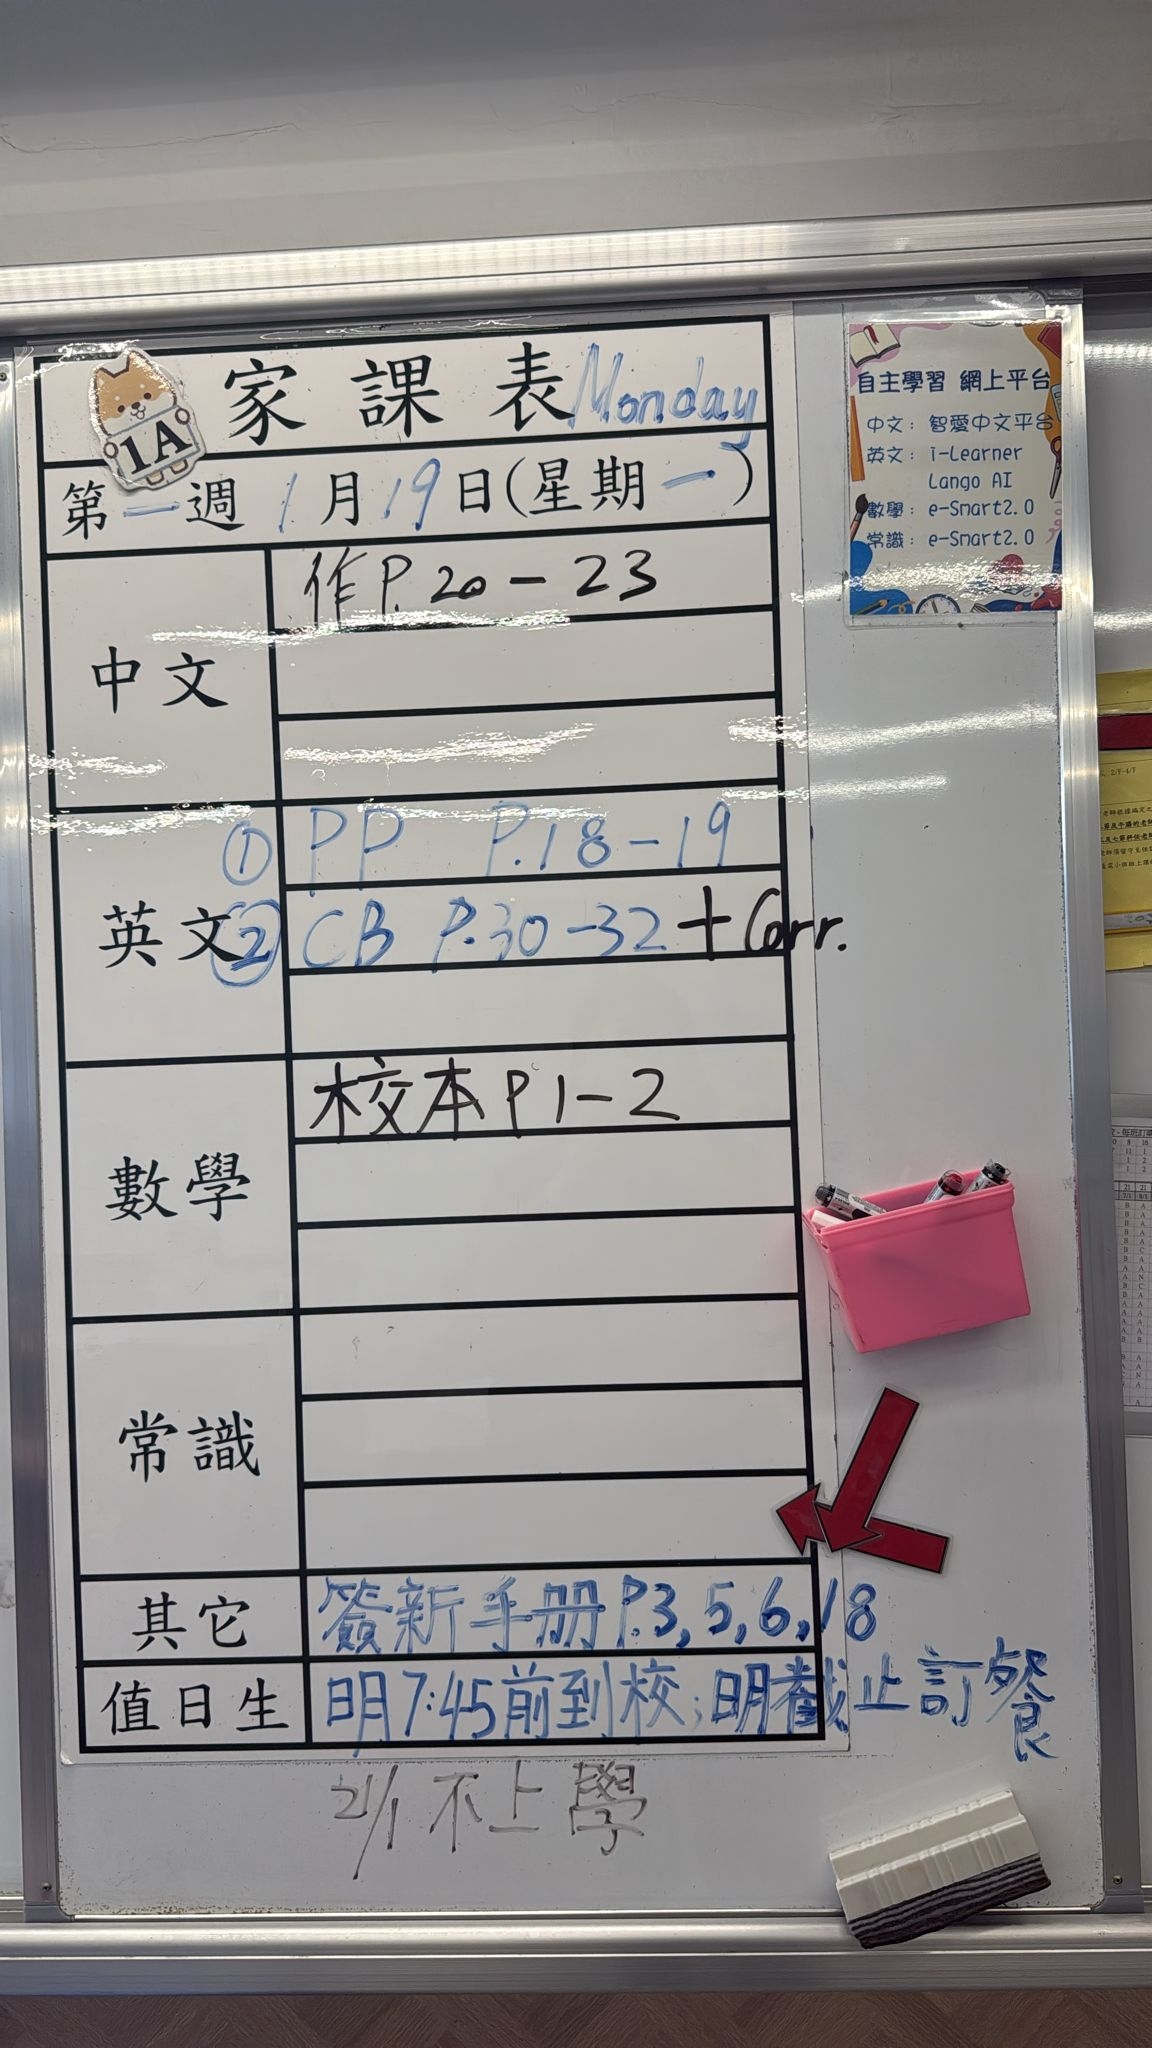 家課表 Monday
1A
第一週 1月19日(星期一)
中文
作P.20-23
英文
① PP P.18-19
② CB P.30-32 + Corr.
數學
校本P1-2
常識
其它
簽新手册P.3,5,6,18
值日生
明7:45前到校;明截止訂餐
21/1 不上學
自主學習 網上平台
中文:智愛中文平台
英文:i-Learner
Lango AI
數學:e-Smart2.0
常識:e-Smart2.0